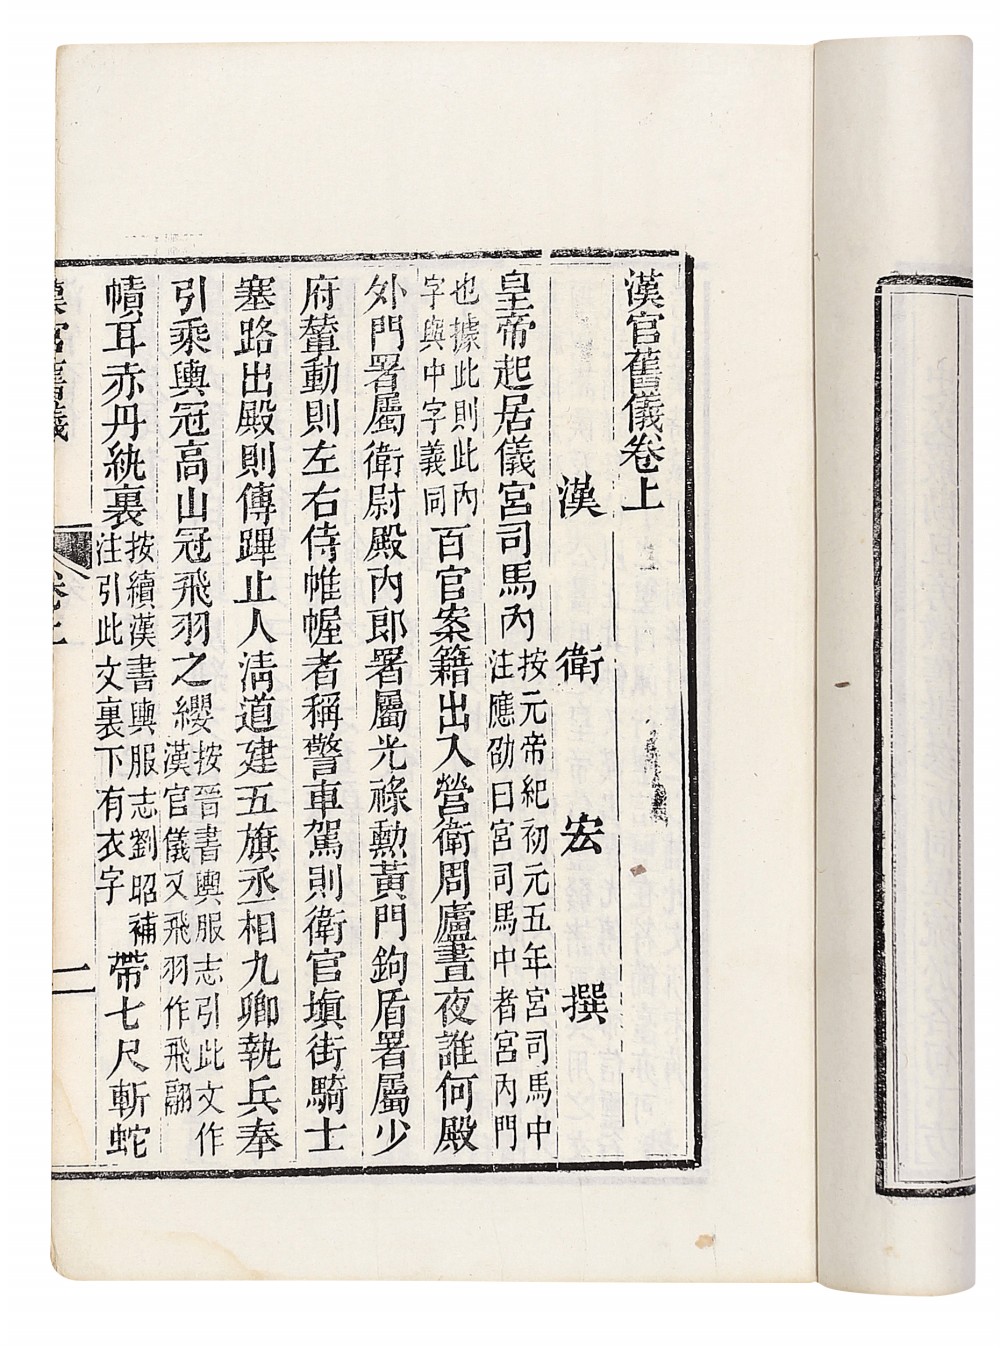 漢官舊儀卷上
漢衛宏撰
皇帝起居儀宮司馬內按元帝紀初元五年宮司馬中
注應劭曰宮司馬中者宮內門
也據此則此內
字與中字義同百官案籍出入營衛周廬晝夜誰何殿
外門署屬衛尉殿內郎署屬光祿勲黃門鉤盾署屬少
府輦動則左右侍帷幄者稱警車駕則衛官塡街騎士
塞路出殿則傳蹕止人淸道建五旗丞相九卿執兵奉
引乘輿冠高山冠飛羽之纓按晉書輿服志引此文作
漢官儀又飛羽作飛翮
幘耳赤丹紈裏按續漢書輿服志劉昭補
注引此文裏下有衣字帶七尺斬蛇
漢官舊儀
卷上
一